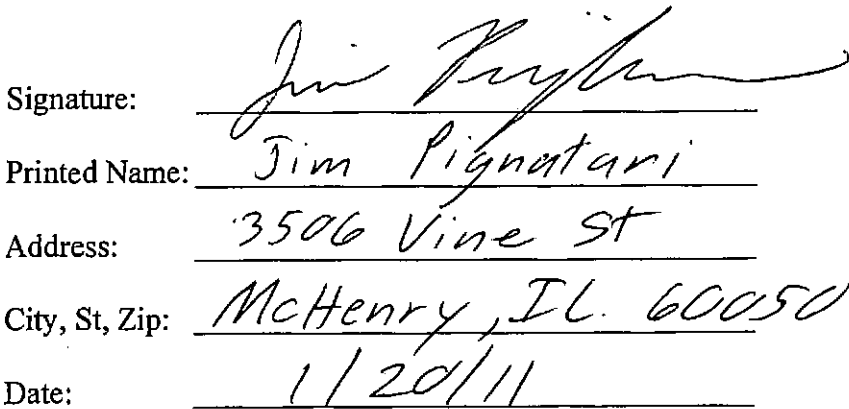 Signature: Jim
Printed Name: Jim Pignatari
Address: 3506 Vine St
City, St, Zip: McHenry, IL. 60050
Date: 1/20/11